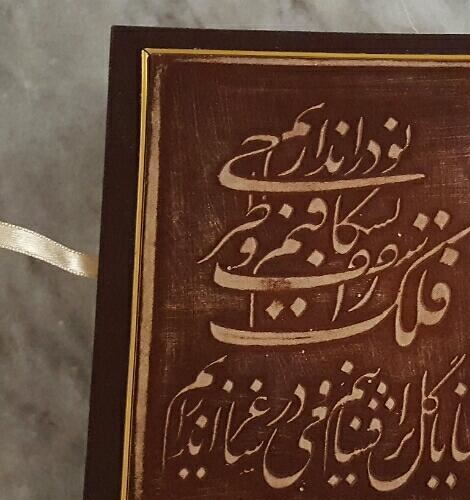 فلک را سقف بشکافیم و طرحی نو دراندازیم
تا گل برافشانیم و می در ساغر اندازیم